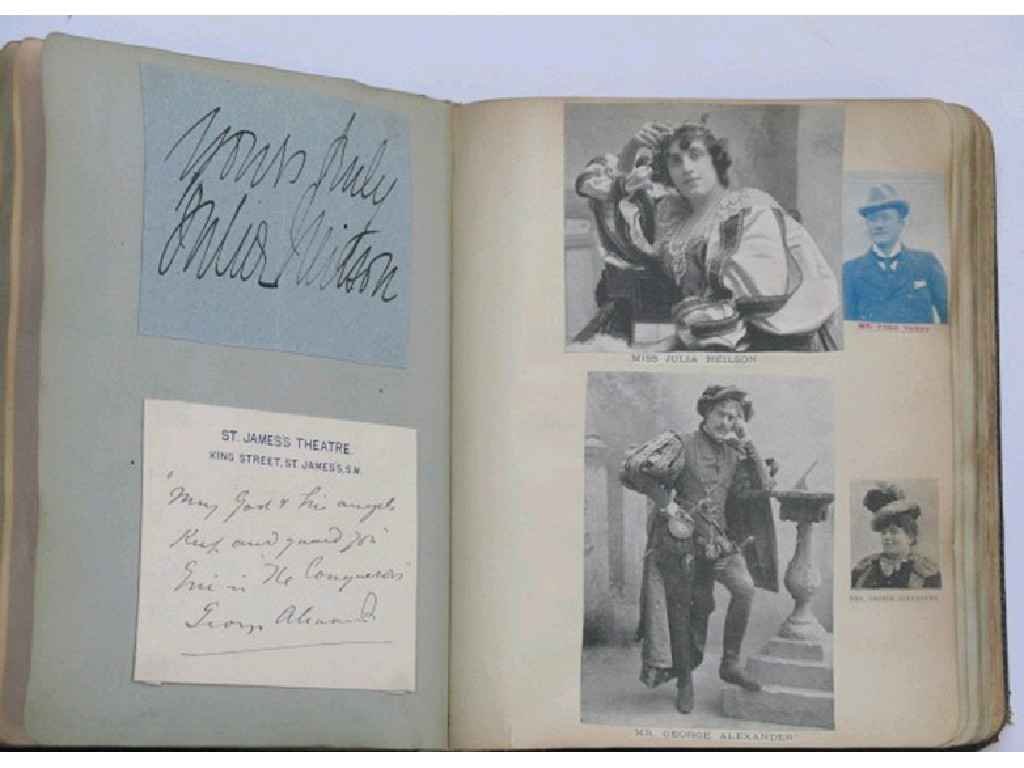 Yours truly
Julia Neilson
ST. JAMES'S THEATRE.
KING STREET, ST. JAMES'S, S.W.
"May God & his angels
Keep and guard you"
Eric in "The Conquerors"
George Alexander
MISS JULIA NEILSON
MR. FRED TERRY
MR. GEORGE ALEXANDER
MRS. GEORGE ALEXANDER.